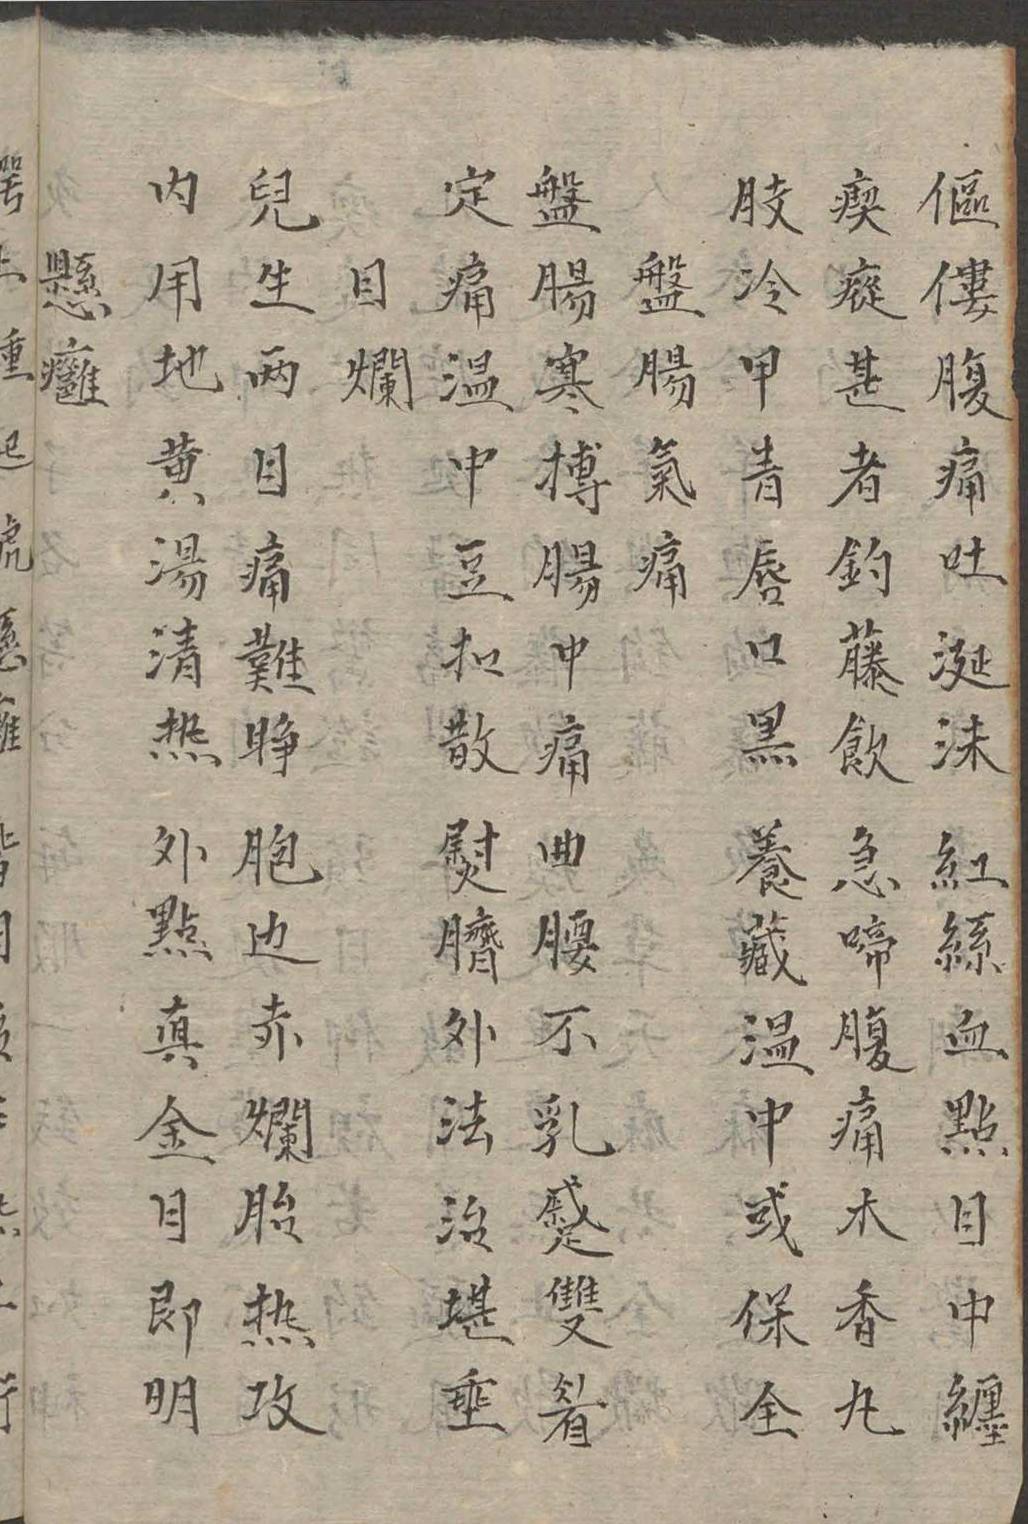 傴僂腹痛吐涎沫 紅絲血點目中纏
瘈瘲甚者鈞藤飲 急啼腹痛木香丸
肢冷甲青唇口黑 養藏温中或保全
盤腸氣痛
盤腸寒搏腸中痛 曲腰不乳蹙雙眉
定痛温中豆扣散 熨臍外法治堪垂
目爛
兒生兩目痛難睜 胞边赤爛胎热攻
内用地黄湯清热 外點真金目即明
懸癰